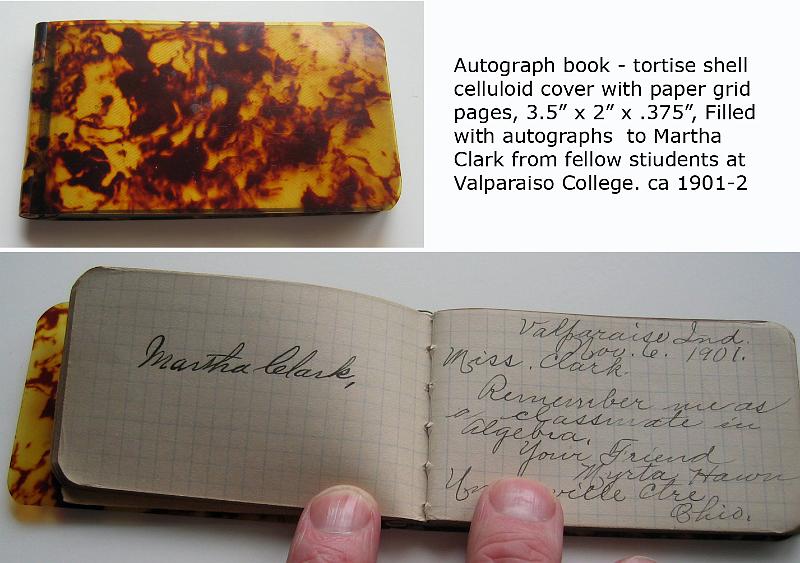 Autograph book - tortise shell
celluloid cover with paper grid
pages, 3.5” x 2” x .375”, Filled
with autographs to Martha
Clark from fellow stiudents at
Valparaiso College. ca 1901-2
Martha Clark,
Valparaiso Ind.
Nov. 6. 1901.
Miss. Clark.
Remember me as
a classmate in
Algebra.
Your Friend
Myrta Hawn
ville Ctre
Ohio.